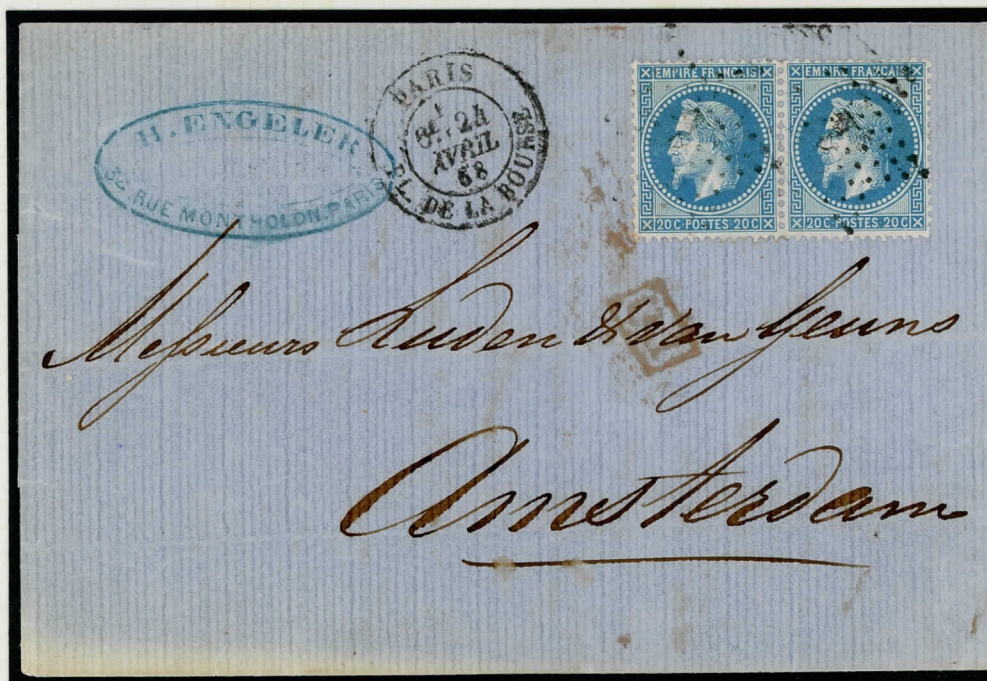 H. ENGELER
RUE MONTHOLON. PARIS
PARIS
24
AVRIL
68
PL. DE LA BOURSE
EMPIRE FRANÇAIS
20C·POSTES·20C
EMPIRE FRANÇAIS
20C·POSTES·20C
Messieurs Luden & van Geuns
Amsterdam